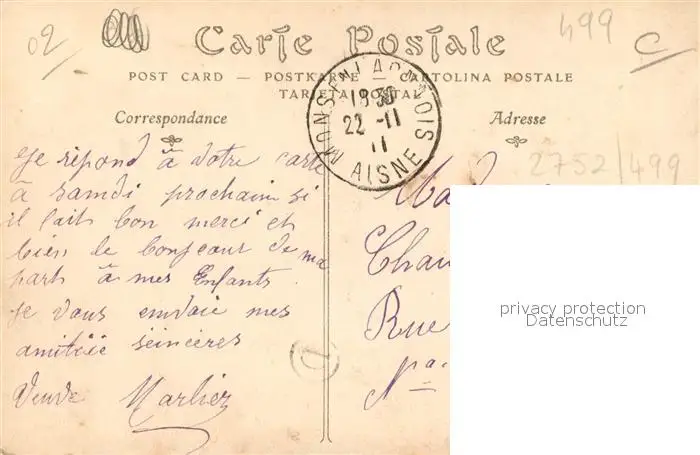 02
499
C
Carte Postale
POST CARD — POSTKARTE — CARTOLINA POSTALE
TARJETA POSTAL
Correspondance
Adresse
MONS EN LAONNOIS
18 30
22 - 11
11
AISNE
2752/499
Je répond à votre carte
à samdi prochain si
il fait bon merci et
bien le bonjour de ma
part à mes Enfants
Je vous envoie mes
amitiée seincères
Veuve Marlier
Rue
privacy protection
Datenschutz